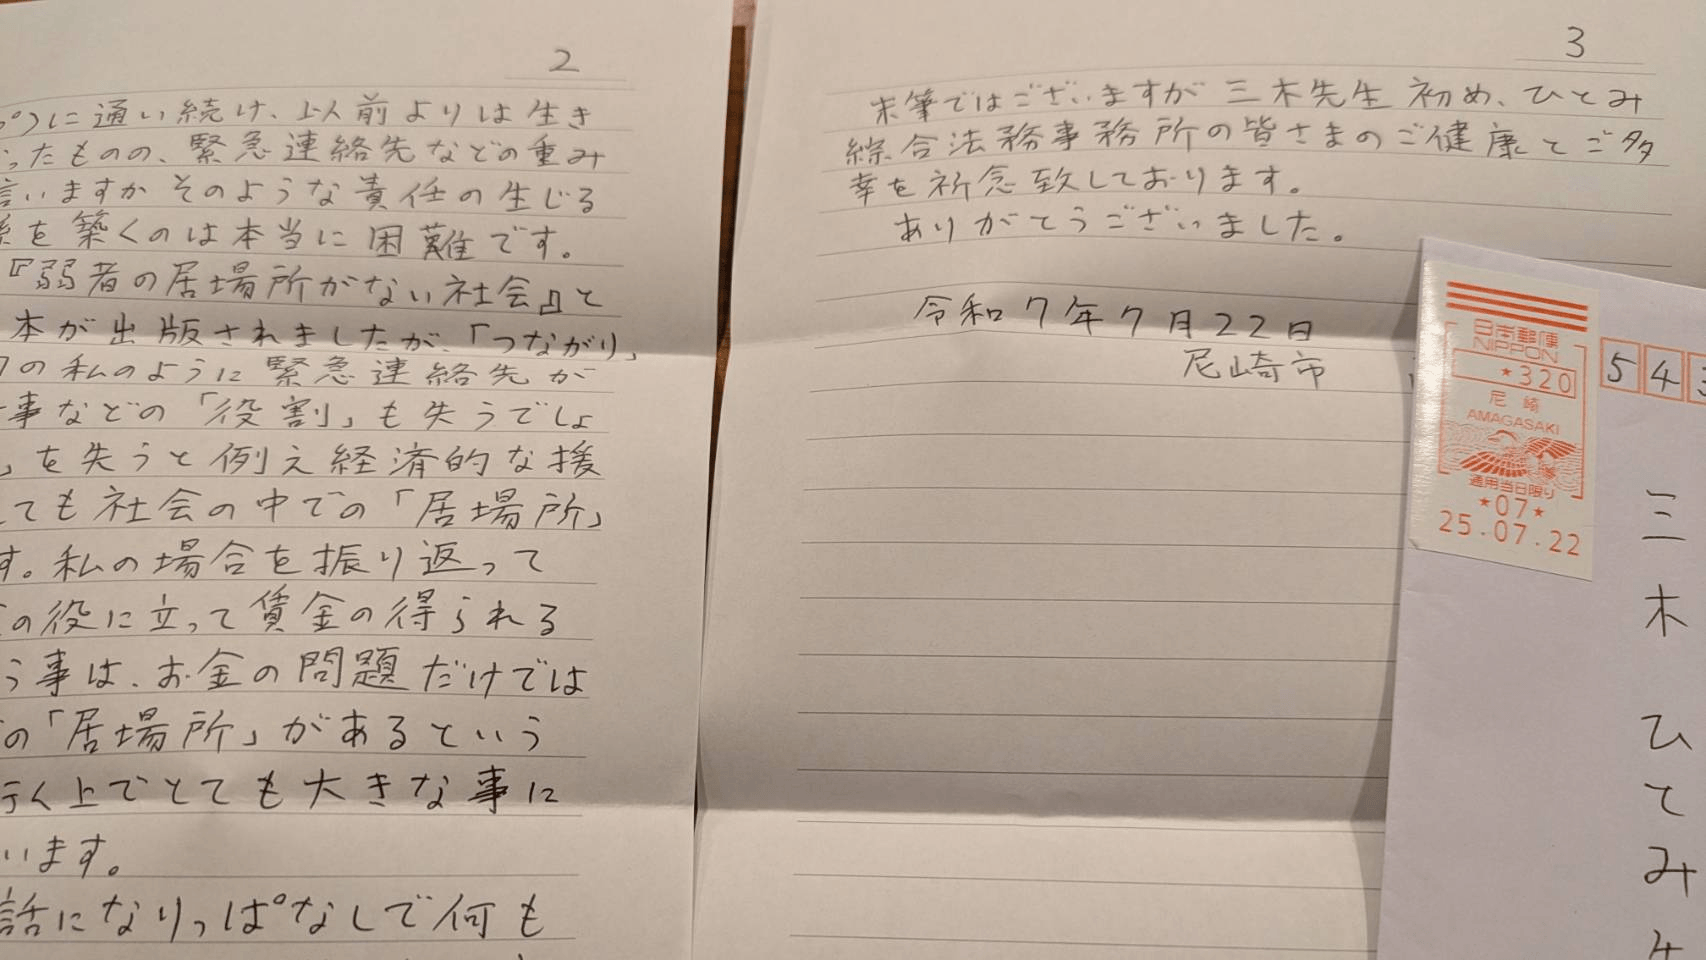 2
に通い続け、以前よりは生き
ったものの、緊急連絡先などの重み
言いますかそのような責任の生じる
を築くのは本当に困難です。
『弱者の居場所がない社会』と
本が出版されましたが、「つながり」
の私のように緊急連絡先が
事などの「役割」も失うでしょ
」を失うと例え経済的な援
ても社会の中での「居場所」
す。私の場合を振り返って
の役に立って賃金の得られる
う事は、お金の問題だけでは
の「居場所」があるという
行く上でとても大きな事に
います。
話になりっぱなしで何も
3
末筆ではございますが三木先生初め、ひとみ
綜合法務事務所の皆さまのご健康とご多
幸を祈念致しております。
ありがとうございました。
令和7年7月22日
尼崎市
日本郵便
NIPPON
★320
尼崎
AMAGASAKI
通用当日限り
★07★
25.07.22
543
三木ひとみ